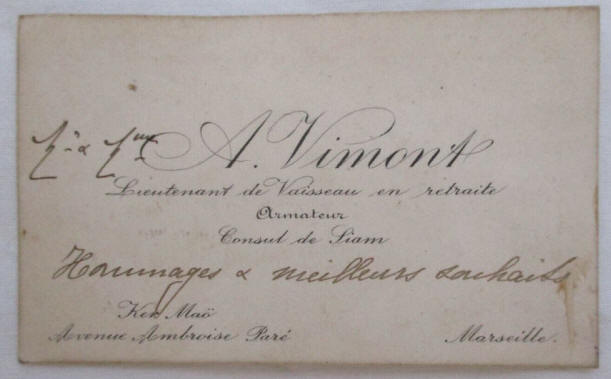 A. Vimont
Lieutenant de Vaisseau en retraite
Armateur
Consul de Siam
Hommages & meilleurs souhaits
Ker Maö
Avenue Ambroise Paré Marseille.